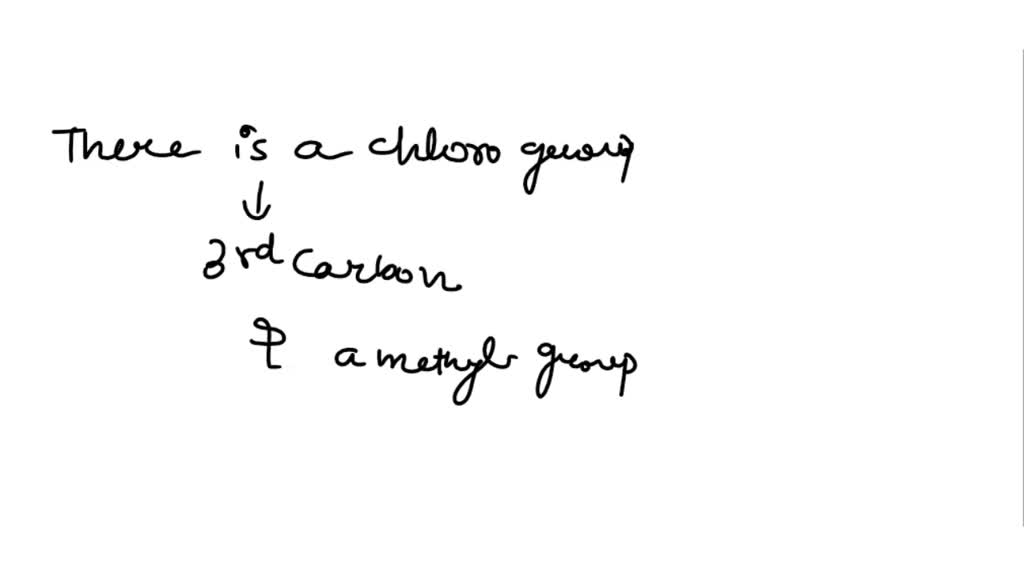 There is a chloro group
↓
3rd Carbon
& a methyl group